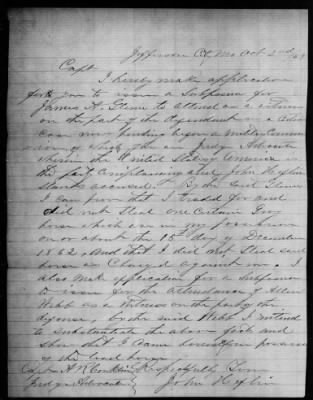 Jefferson City Mo Oct 2nd 63
Capt
I hereby make application
for you to issue a Subpoena for
James H. to attend as a witness
on the part of the defendant in a
case now pending before a Military Commis
sion of which you are Judge Advocate
wherein the United States of America is
the party Complaining and John Heflin
stands accused. By the said
I can prove that I traded for and
did not Steal one certain Gray
horse which was in my possession
on or about the 15th day of December
1862, And that I did not Steal said
horse as Charged against me. I
also make application for a Subpoena
to issue for the attendance of Allen
Webb as a Witness on the part of the
defense, by the said Webb I intend
to substantiate the above fact and
show that I came in possession
of the said horse
Respectfully Your
Judge Advocate
John Heflin